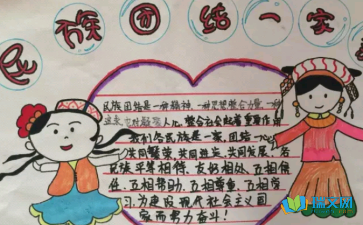 民族团结一家
民族团结是一种精神,一种
整合社会起着重要作用
我们各民族是一家,团结一
共同繁荣,共同进步,共同发展,各
民族平等相待,友好相处,互相信
任,互相帮助,互相尊重,互相学
习,为建设现代社会主义国
家而努力奋斗!